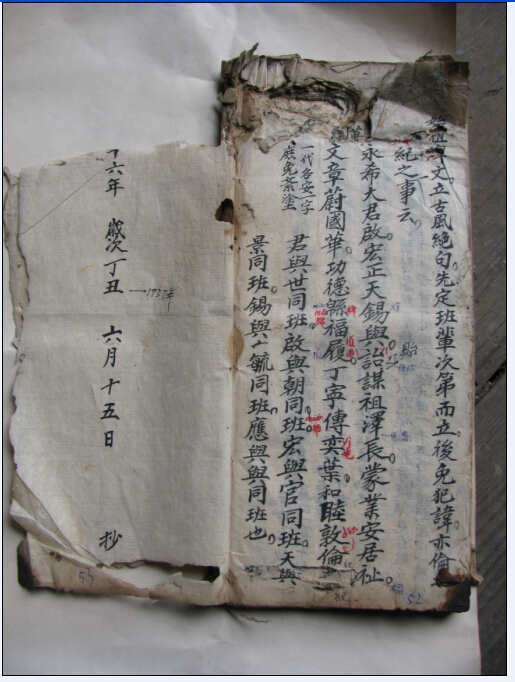 祖 文立古風絕句先定班輩次第而立後免犯諱亦倫
紀之事云
永希大君啟宏正天錫與詒謀祖澤長蒙業安居祉
貽
文章蔚國華功德縣福履丁寧傳奕葉和睦敦倫
紀
一代各安一字
庶免紊塗
君與世同班啟與朝同班宏與官同班天與
景同班錫與 毓同班應與興同班也
六年 歲次丁丑 六月十五日 抄
1937年
52
53